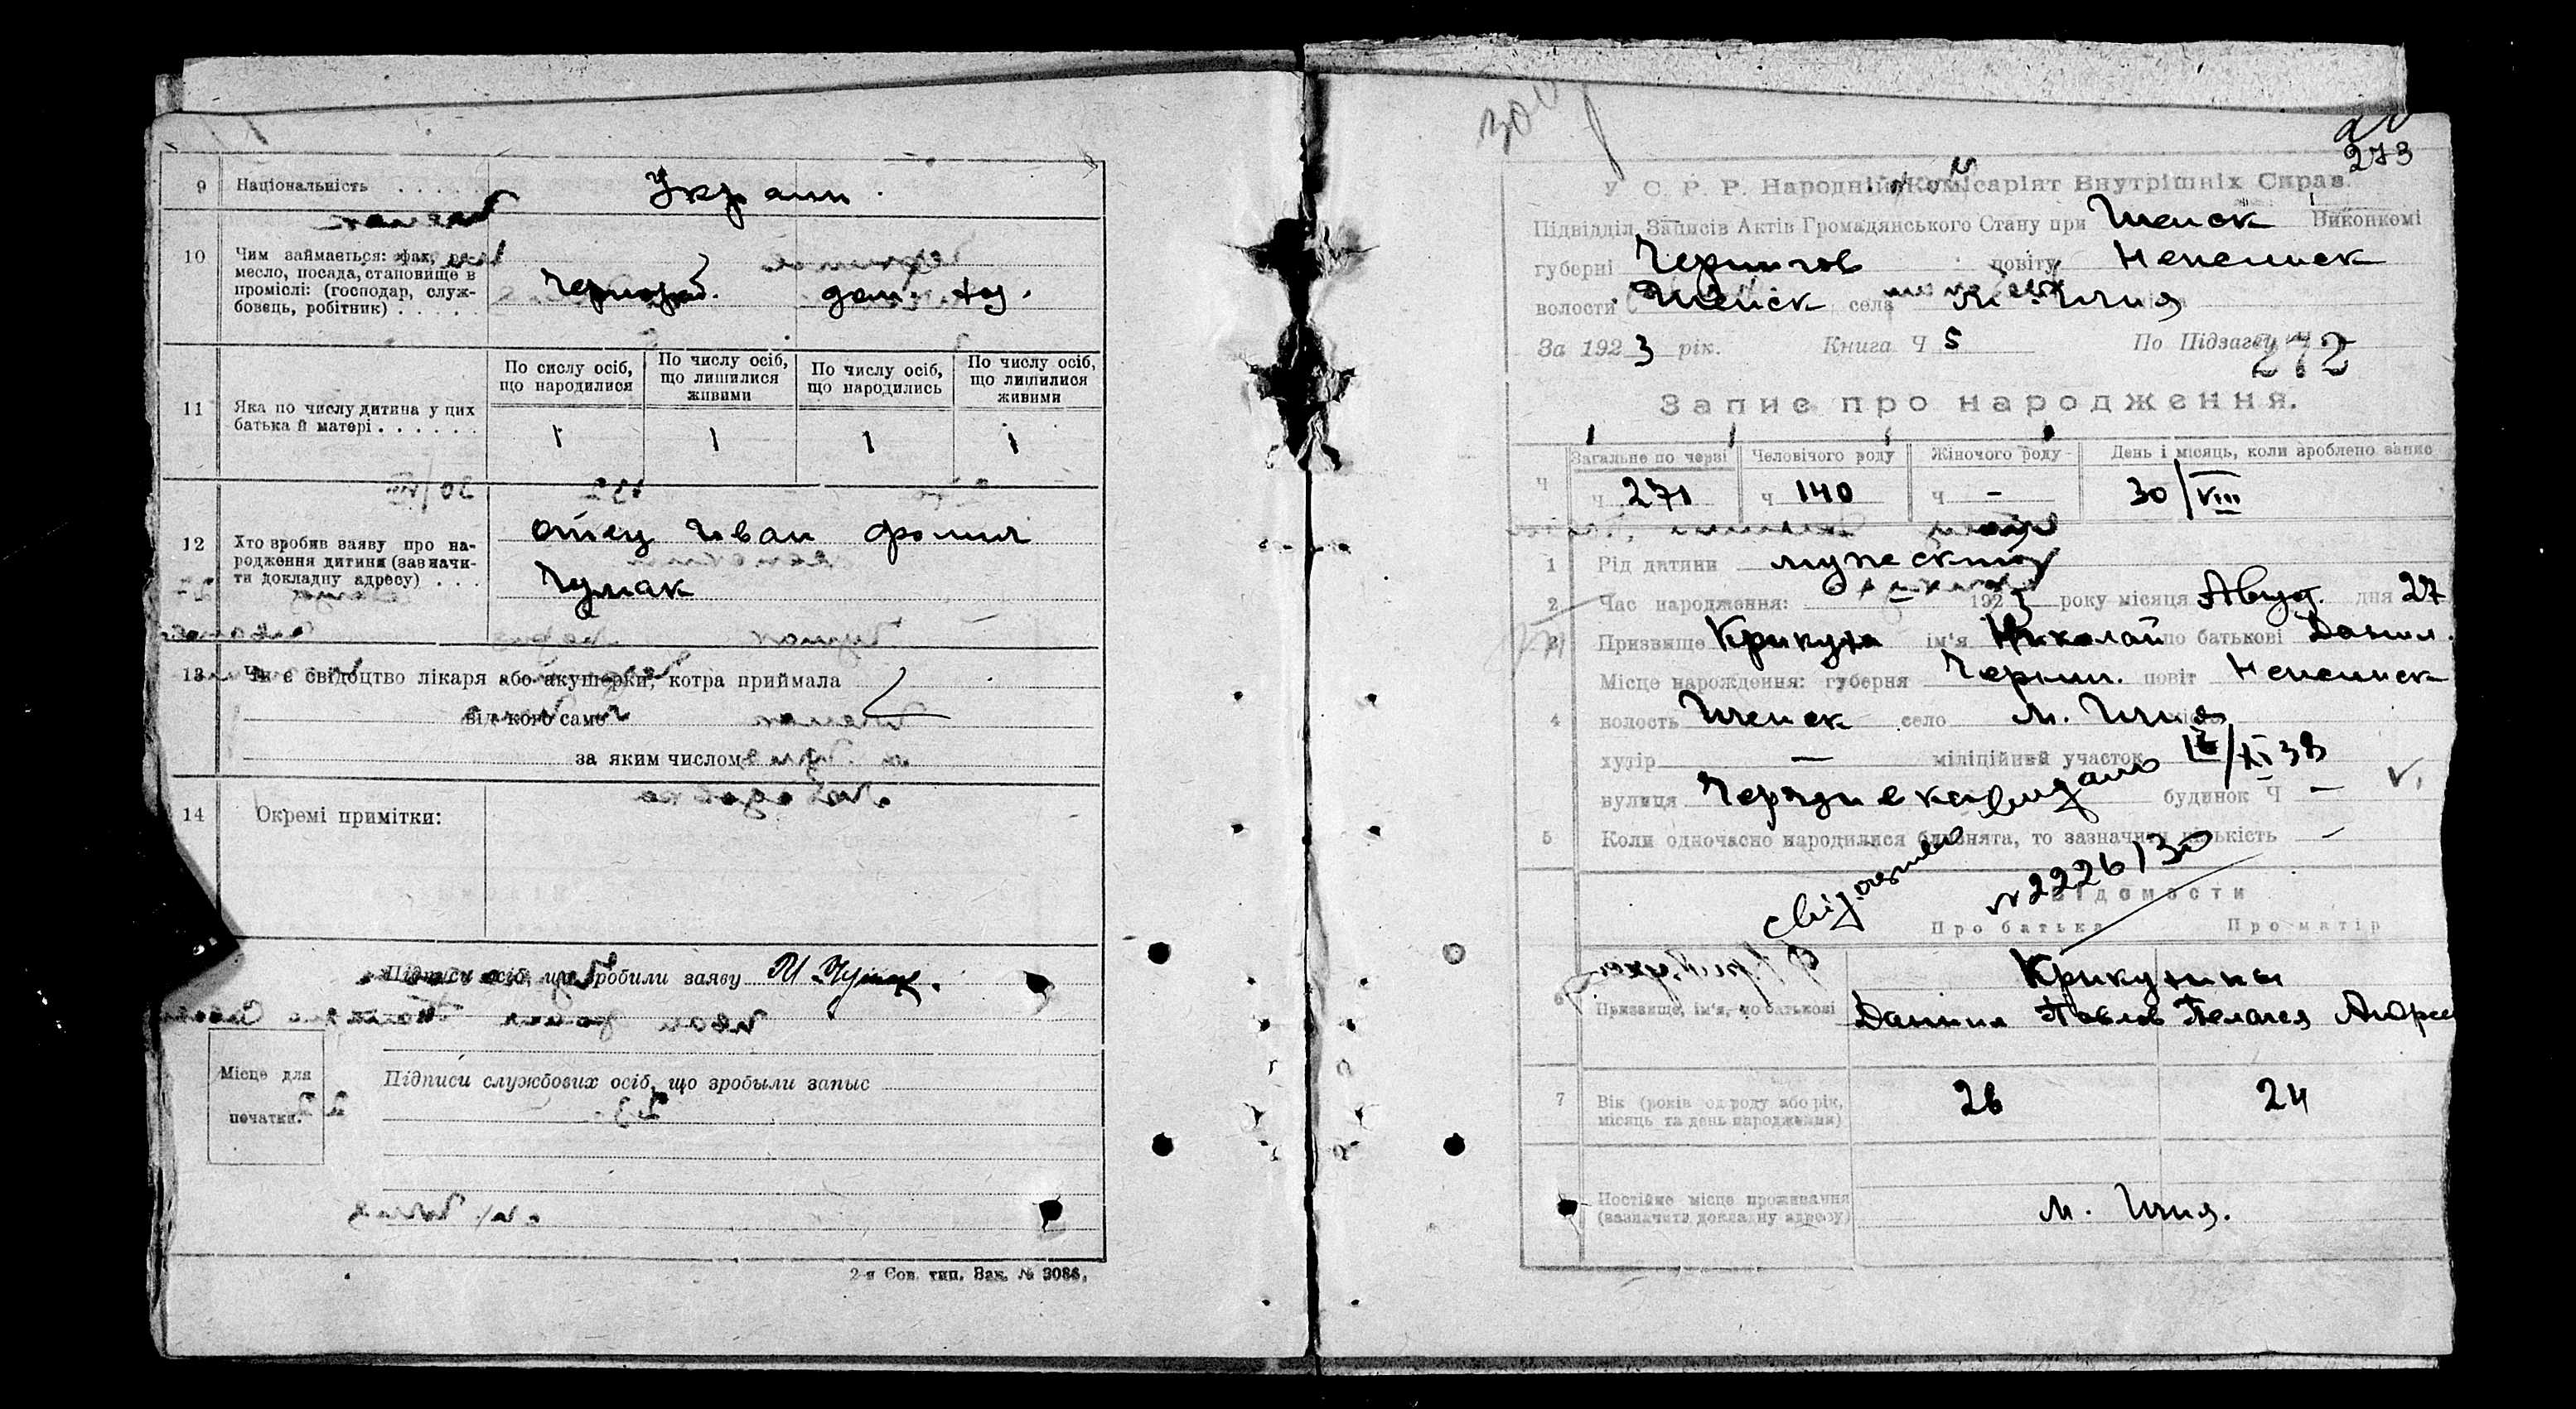 9 Національність . . . . . Украин.
10 Чим займається: фах, ре-
месло, посада, становище в
проміслі: (господар, служ-
бовець, робітник) . . . . . Чернораб. дом. хоз.
11 Яка по числу дитина у цих
батька й матері . . . . . .
По сислу осіб, що народилися
По числу осіб, що лишилися живими
По числу осіб, що народились
По числу осіб, що лишилися живими
1 1 1 1
12 Хто зробив заяву про на-
родження дитини (зазначи-
ти докладну адресу) . . .
отец Иван фомич
Чумак
13 Чи є свідоцтво лікаря або акушерки, котра приймала
від кого саме
за яким числом
14 Окремі примітки:
Підписи осіб, що зробили заяву И. Чумак.
Місце для
печатки.
Підписи службових осіб, що зробыли запыс
2-я Сов. тип. Зак. № 3086.
273
У. С. Р. Р. Народній Комісаріят Внутрішніх Справ.
Підвідділ Записів Актів Громадянського Стану при Ичнск Виконкомі
губерні Чернигов повіту Неженск
волости Ичнск села м. Ичня
За 1923 рік. Книга Ч 5 По Підзагсу Ч
272
Запис про народження.
Ч
Загальне по черзі
Человічого роду
Жіночого роду
День і місяць, коли зроблено запис
ч 271 ч 140 ч - 30/VIII
1 Рід дитини мужеский
2 Час народження: 1923 року місяця Август. дня 27
3 Призвище Крикуна ім'я Николай по батькові Данил.
4 Місце народження: губерня Черниг. повіт Неженск
волость Ичнск село м. Ичня
хутір — міліційний участок
вулиця будинок Ч —
видано 16/XI 38
5 Коли одночасно народилися близнята, то зазначити кількість —
свідоцтво
№ 2226130
Відомости
Про батька Про матір
6 Призвище, ім'я, по батькові
Крикунины
Даниил Павлов Пелагея Андрее
7 Вік (років од роду або рік,
місяць та день народження) 26 24
Постійне місце проживання
(зазначити докладну адресу) м. Ичня.